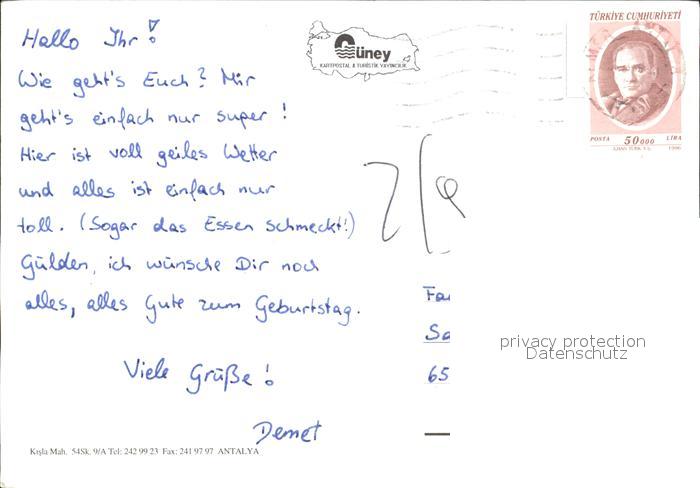 Hallo Ihr!
Wie geht's Euch? Mir
geht's einfach nur super!
Hier ist voll geiles Wetter
und alles ist einfach nur
toll. (Sogar das Essen schmeckt!)
Gülden, ich wünsche Dir noch
alles, alles Gute zum Geburtstag.
Viele Grüße!
Demet
Kışla Mah. 54Sk. 9/A Tel: 242 99 23 Fax: 241 97 97 ANTALYA
Güney
KARTPOSTAL & TURİSTİK YAYINCILIK
TÜRKİYE CUMHURİYETİ
POSTA 50000 LİRA
1996
65
privacy protection
Datenschutz